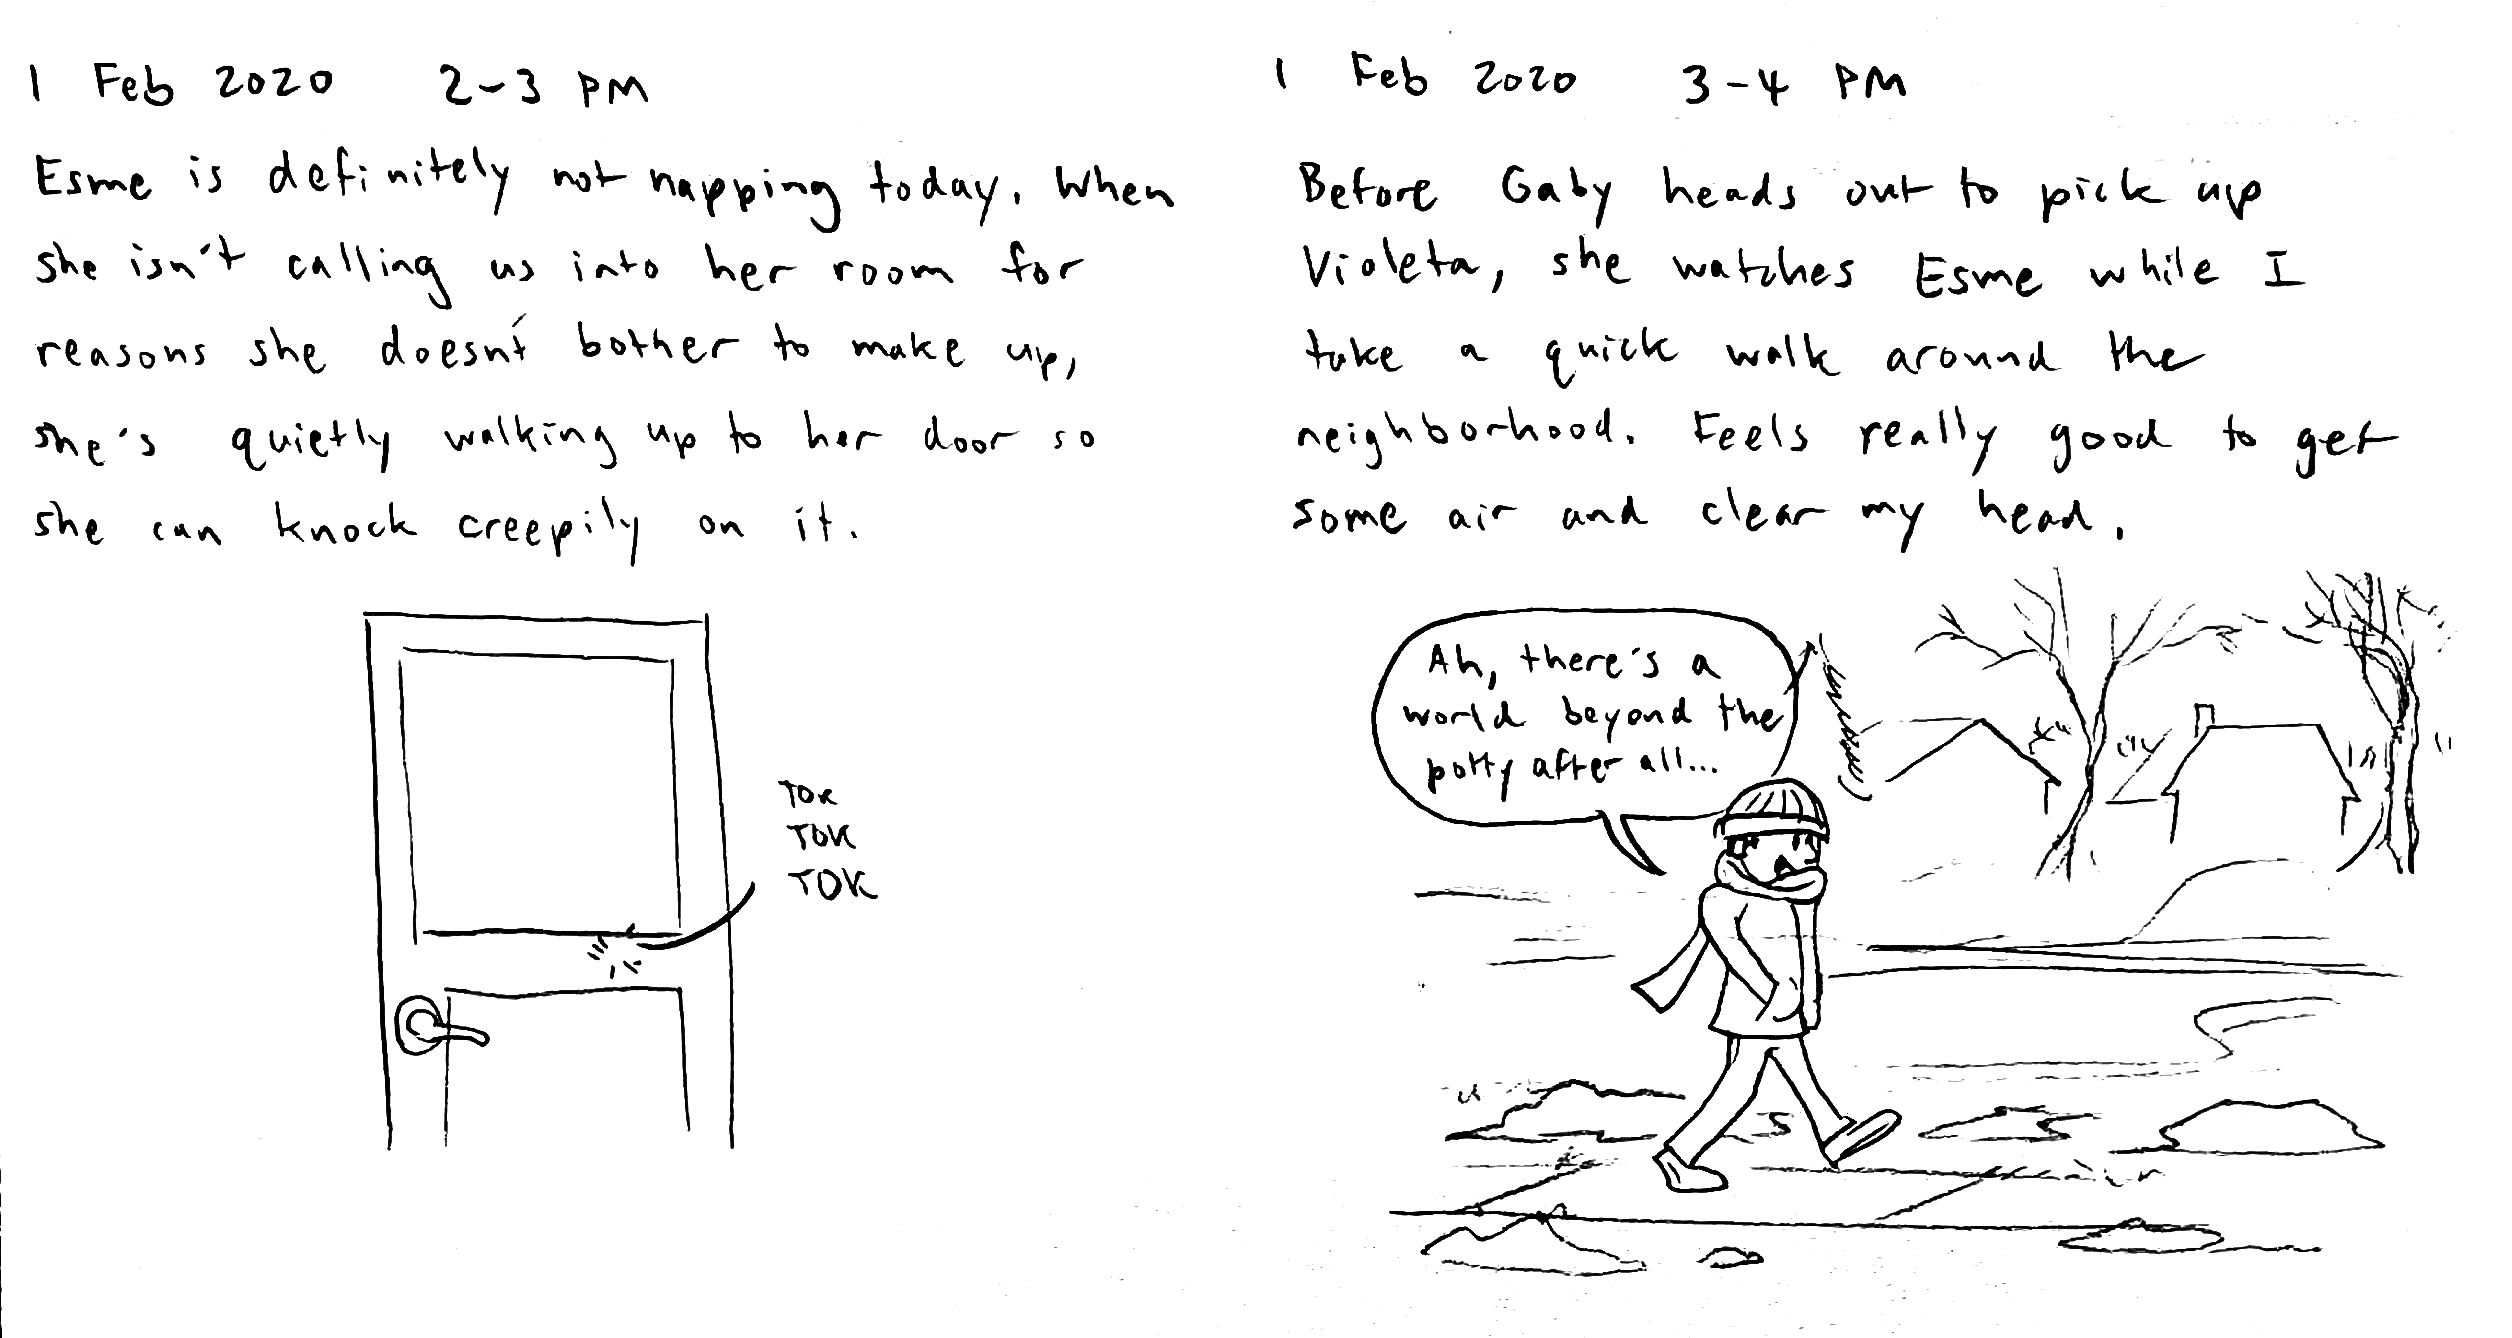 1 Feb 2020 2-3 PM
Esme is definitely not napping today. When
she isn't calling us into her room for
reasons she doesn't bother to make up,
she's quietly walking up to her door so
she can knock creepily on it.
TOK
TOK
TOK
1 Feb 2020 3-4 PM
Before Gaby heads out to pick up
Violeta, she watches Esme while I
take a quick walk around the
neighborhood. Feels really good to get
some air and clear my head.
Ah, there's a
world beyond the
potty after all...